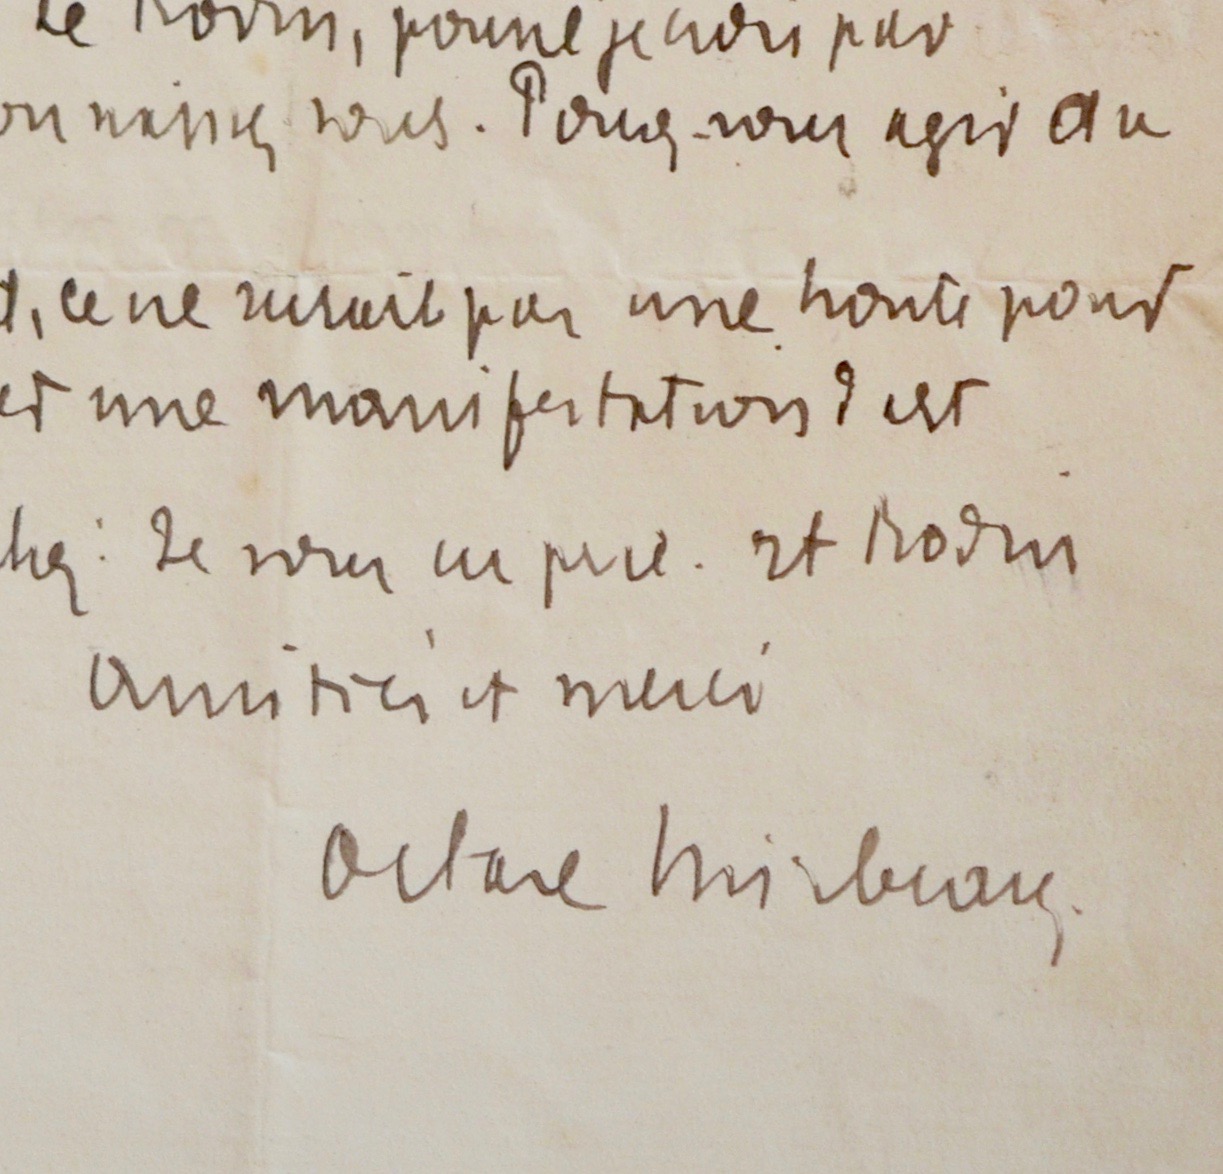 de Rodin, pour je crois pas
connaissez vous. Pouvez-vous agir au
, ce ne serait pas une honte pour
une manifestation d'art
: Je vous en prie. et Rodin
Amitiés et merci
Octave Mirbeau.